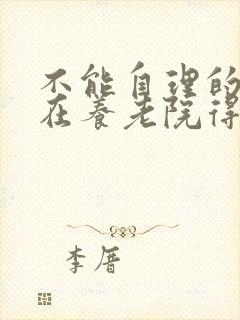 不能自理的
在养老院得
李厝